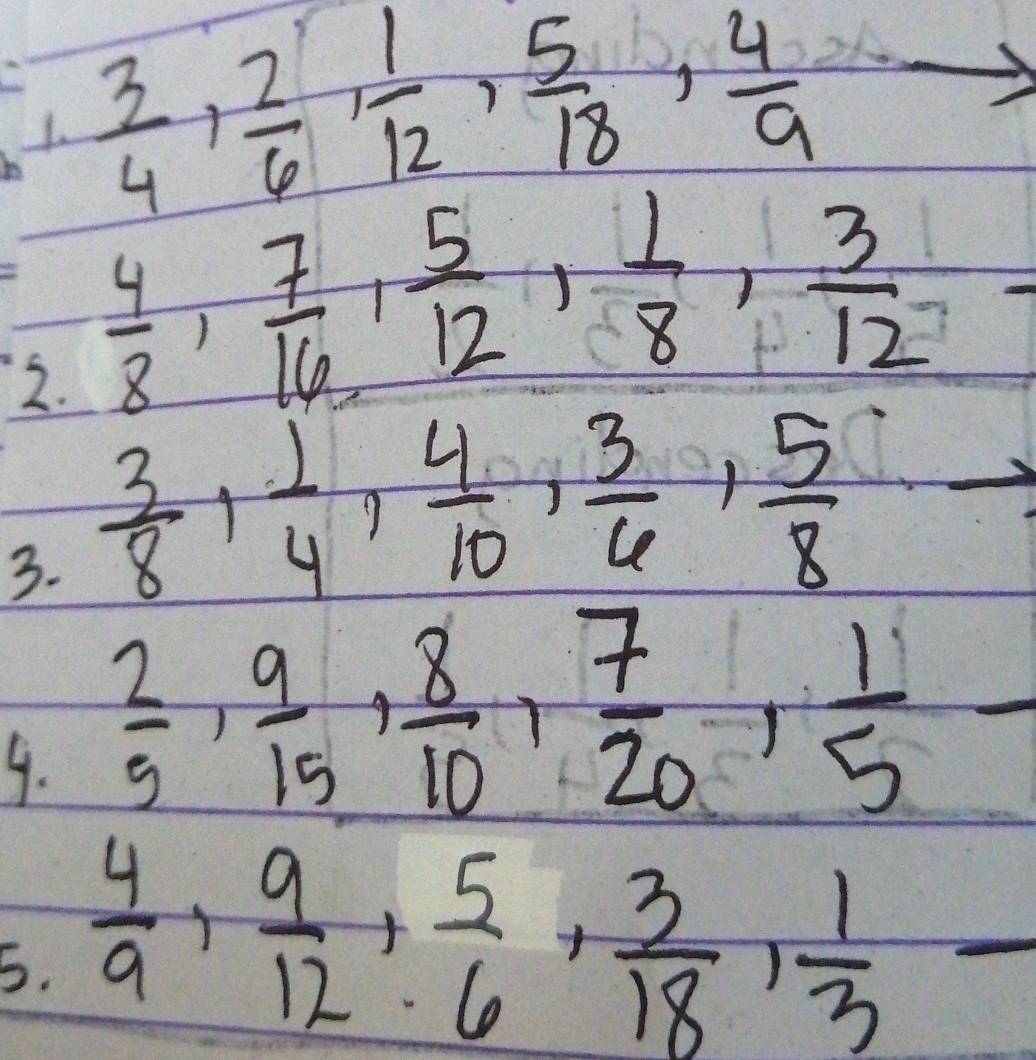 1. 3/4, 2/6, 1/12, 5/18, 4/9 →
2. 4/8, 7/16, 5/12, 1/8, 3/12 -
3. 3/8, 1/4, 4/10, 3/6, 5/8 →
4. 2/5, 9/15, 8/10, 7/20, 1/5 -
5. 4/9, 9/12, 5/6, 3/18, 1/3 -